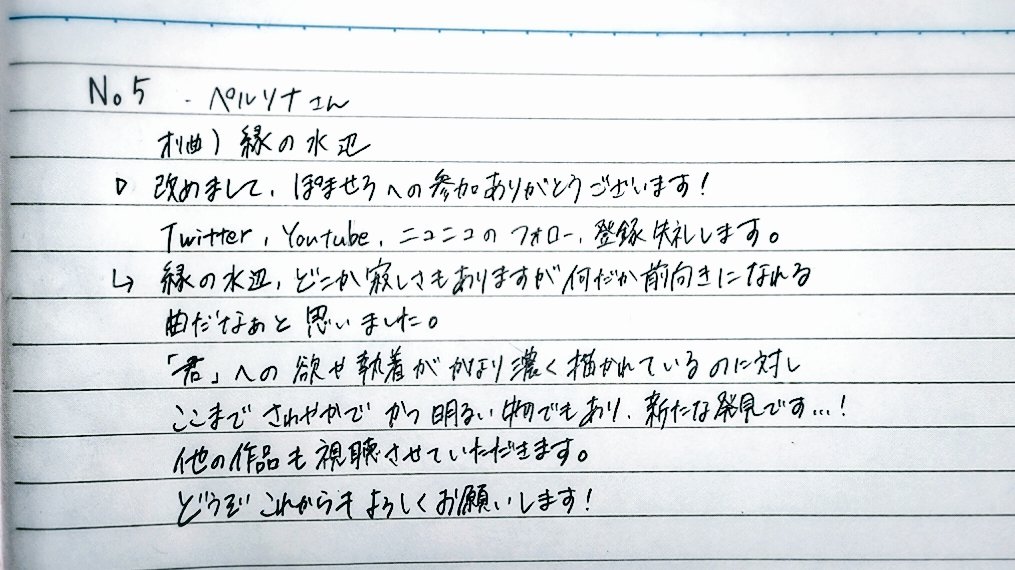 No5 ・ペルソナさん
オリ曲) 縁の水辺
▷ 改めまして、ぽませろへの参加ありがとうございます!
Twitter, Youtube, ニコニコのフォロー、登録失礼します。
↳ 縁の水辺、どこか寂しさもありますが何だか前向きになれる
曲だなぁと思いました。
「君」への欲や執着がかなり濃く描かれているのに対し
ここまでさわやかでかつ明るい物でもあり、新たな発見です…!
他の作品も視聴させていただきます。
どうぞこれからもよろしくお願いします!